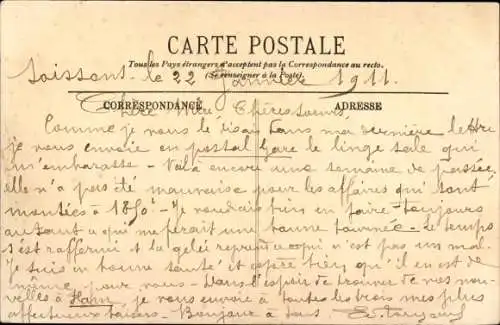 CARTE POSTALE
Tous les Pays étrangers n'acceptent pas la Correspondance au recto.
(Se renseigner à la Poste).
Soissons le 22 Janvier 1911.
CORRESPONDANCE ADRESSE
Chère Mère Chères Soeurs,
Comme je vous le disais dans ma dernière lettre
je vous envoie en postal Gare le linge sale qui
m'embarasse - Voilà encore une semaine de passée,
elle n'a pas été mauvaise pour les affaires qui sont
montées à 1850f - Je voudrais bien en faire toujours
autant ce qui me ferait une bonne tournée - Le temps
s'est raffermi et la gelée reprend ce qui n'est pas un mal.
Je suis en bonne santé et espère bien qu'il en est de
même pour vous - Dans l'espoir de trouver de vos nou-
velles à Ham, je vous envoie à toutes les trois mes plus
affectueux baisers - Bonjour à tous